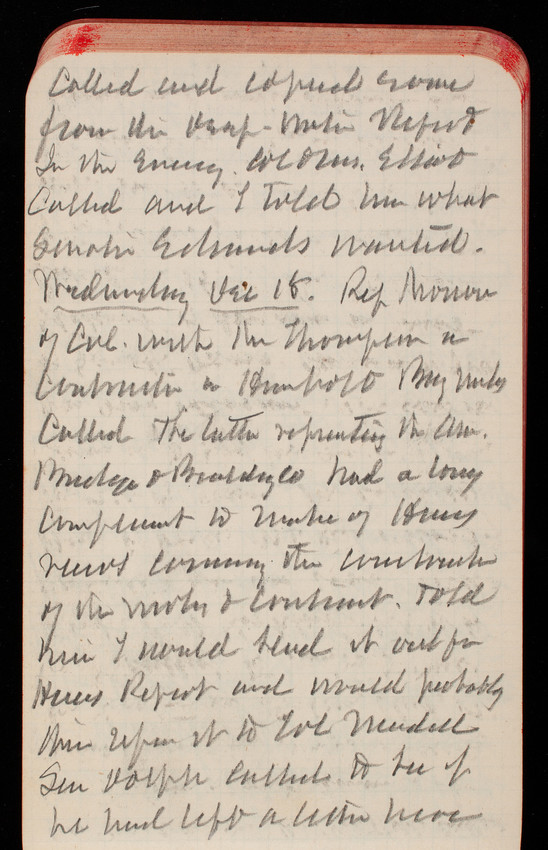 Called and copied some
from the Deep-Water Report
In the Evening Col Chas. Elliot
Called and I told him what
Senator Edmunds wanted.
Wednesday Dec 18. Rep Morrow
of Cal. with Mr Thompson a
Contractor on Humboldt Bay Works
Called The latter representing the Am.
Bridge & Building Co had a long
Complaint to make of Heuer's
views concerning the construction
of the works & contract. Told
him I would send it out for
Heuers Report and would probably
then refer it to Col Mendell
Sen Dolph called to see if
he had left a letter here